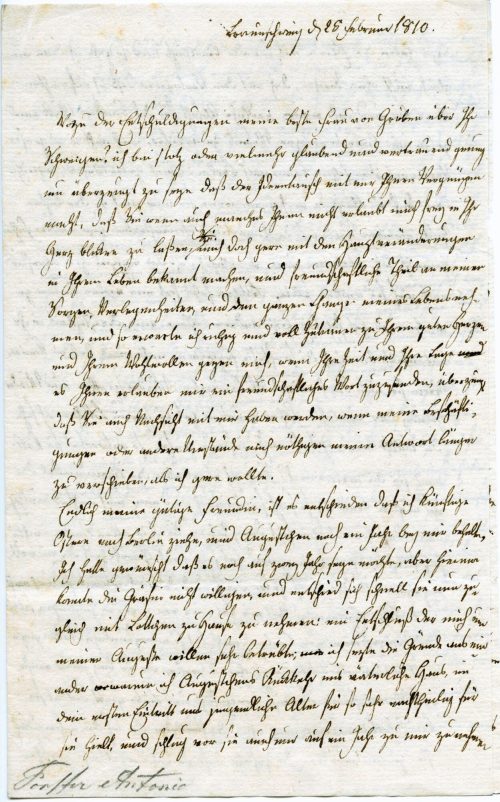 Braunschweig d 26 Februar 1810.
Wozu der Entschuldigungen meine beste Frau von Gerben über Ihr
Schweigen? ich bin stolz oder vielmehr glaubend und vertrauend genug
um überzeugt zu seyn daß der Ideentausch mit mir Ihnen Vergnügen
macht, daß Sie wenn auch manches Ihnen nicht erlaubt mich frey in Ihr
Herz blicken zu laßen, mich doch gern mit den Hauptveränderungen
in Ihrem Leben bekannt machen, und freundschaftliche Theil an meinen
Sorgen, Verlegenheiten, und dem ganzen Gange meines Lebens neh-
men, und so erwarte ich ruhig und voll Zutrauen zu Ihrem guten Herzen
und Ihrem Wohlwollen gegen mich, wenn Ihre Zeit und Ihre Lage
es Ihnen erlauben mir ein freundschaftliches Wort zuzusenden, überzeugt
daß Sie auch Nachsicht mit mir haben werden, wenn meine Beschäfti-
gungen oder andere Umstände mich nöthigen meine Antwort länger
zu verschieben, als ich gern wollte.
Endlich meine gütige Freundin, ist es entschieden daß ich künftige
Ostern nach Berlin ziehe, und Augustchen noch ein Jahr bey mir behalte,
Ich hatte gewünscht daß es noch auf zwey Jahr seyn möchte, aber hierein
konnte die Gräfin nicht willigen, und entschied sich schnell sie nun zu-
gleich mit Lottchen zu Hause zu nehmen: ein Entschluß der mich um
meiner Auguste willen sehr betrübte; ich setzte die Gründe aus ein-
ander warum ich Augustchens Rückkehr ins väterliche Haus, in
dem ersten Eintritt ins jugendliche Alter für so sehr nachtheilig für
sie hielt, und schlug vor sie auch nur auf ein Jahr zu mir zu nehmen
Forster Antonie